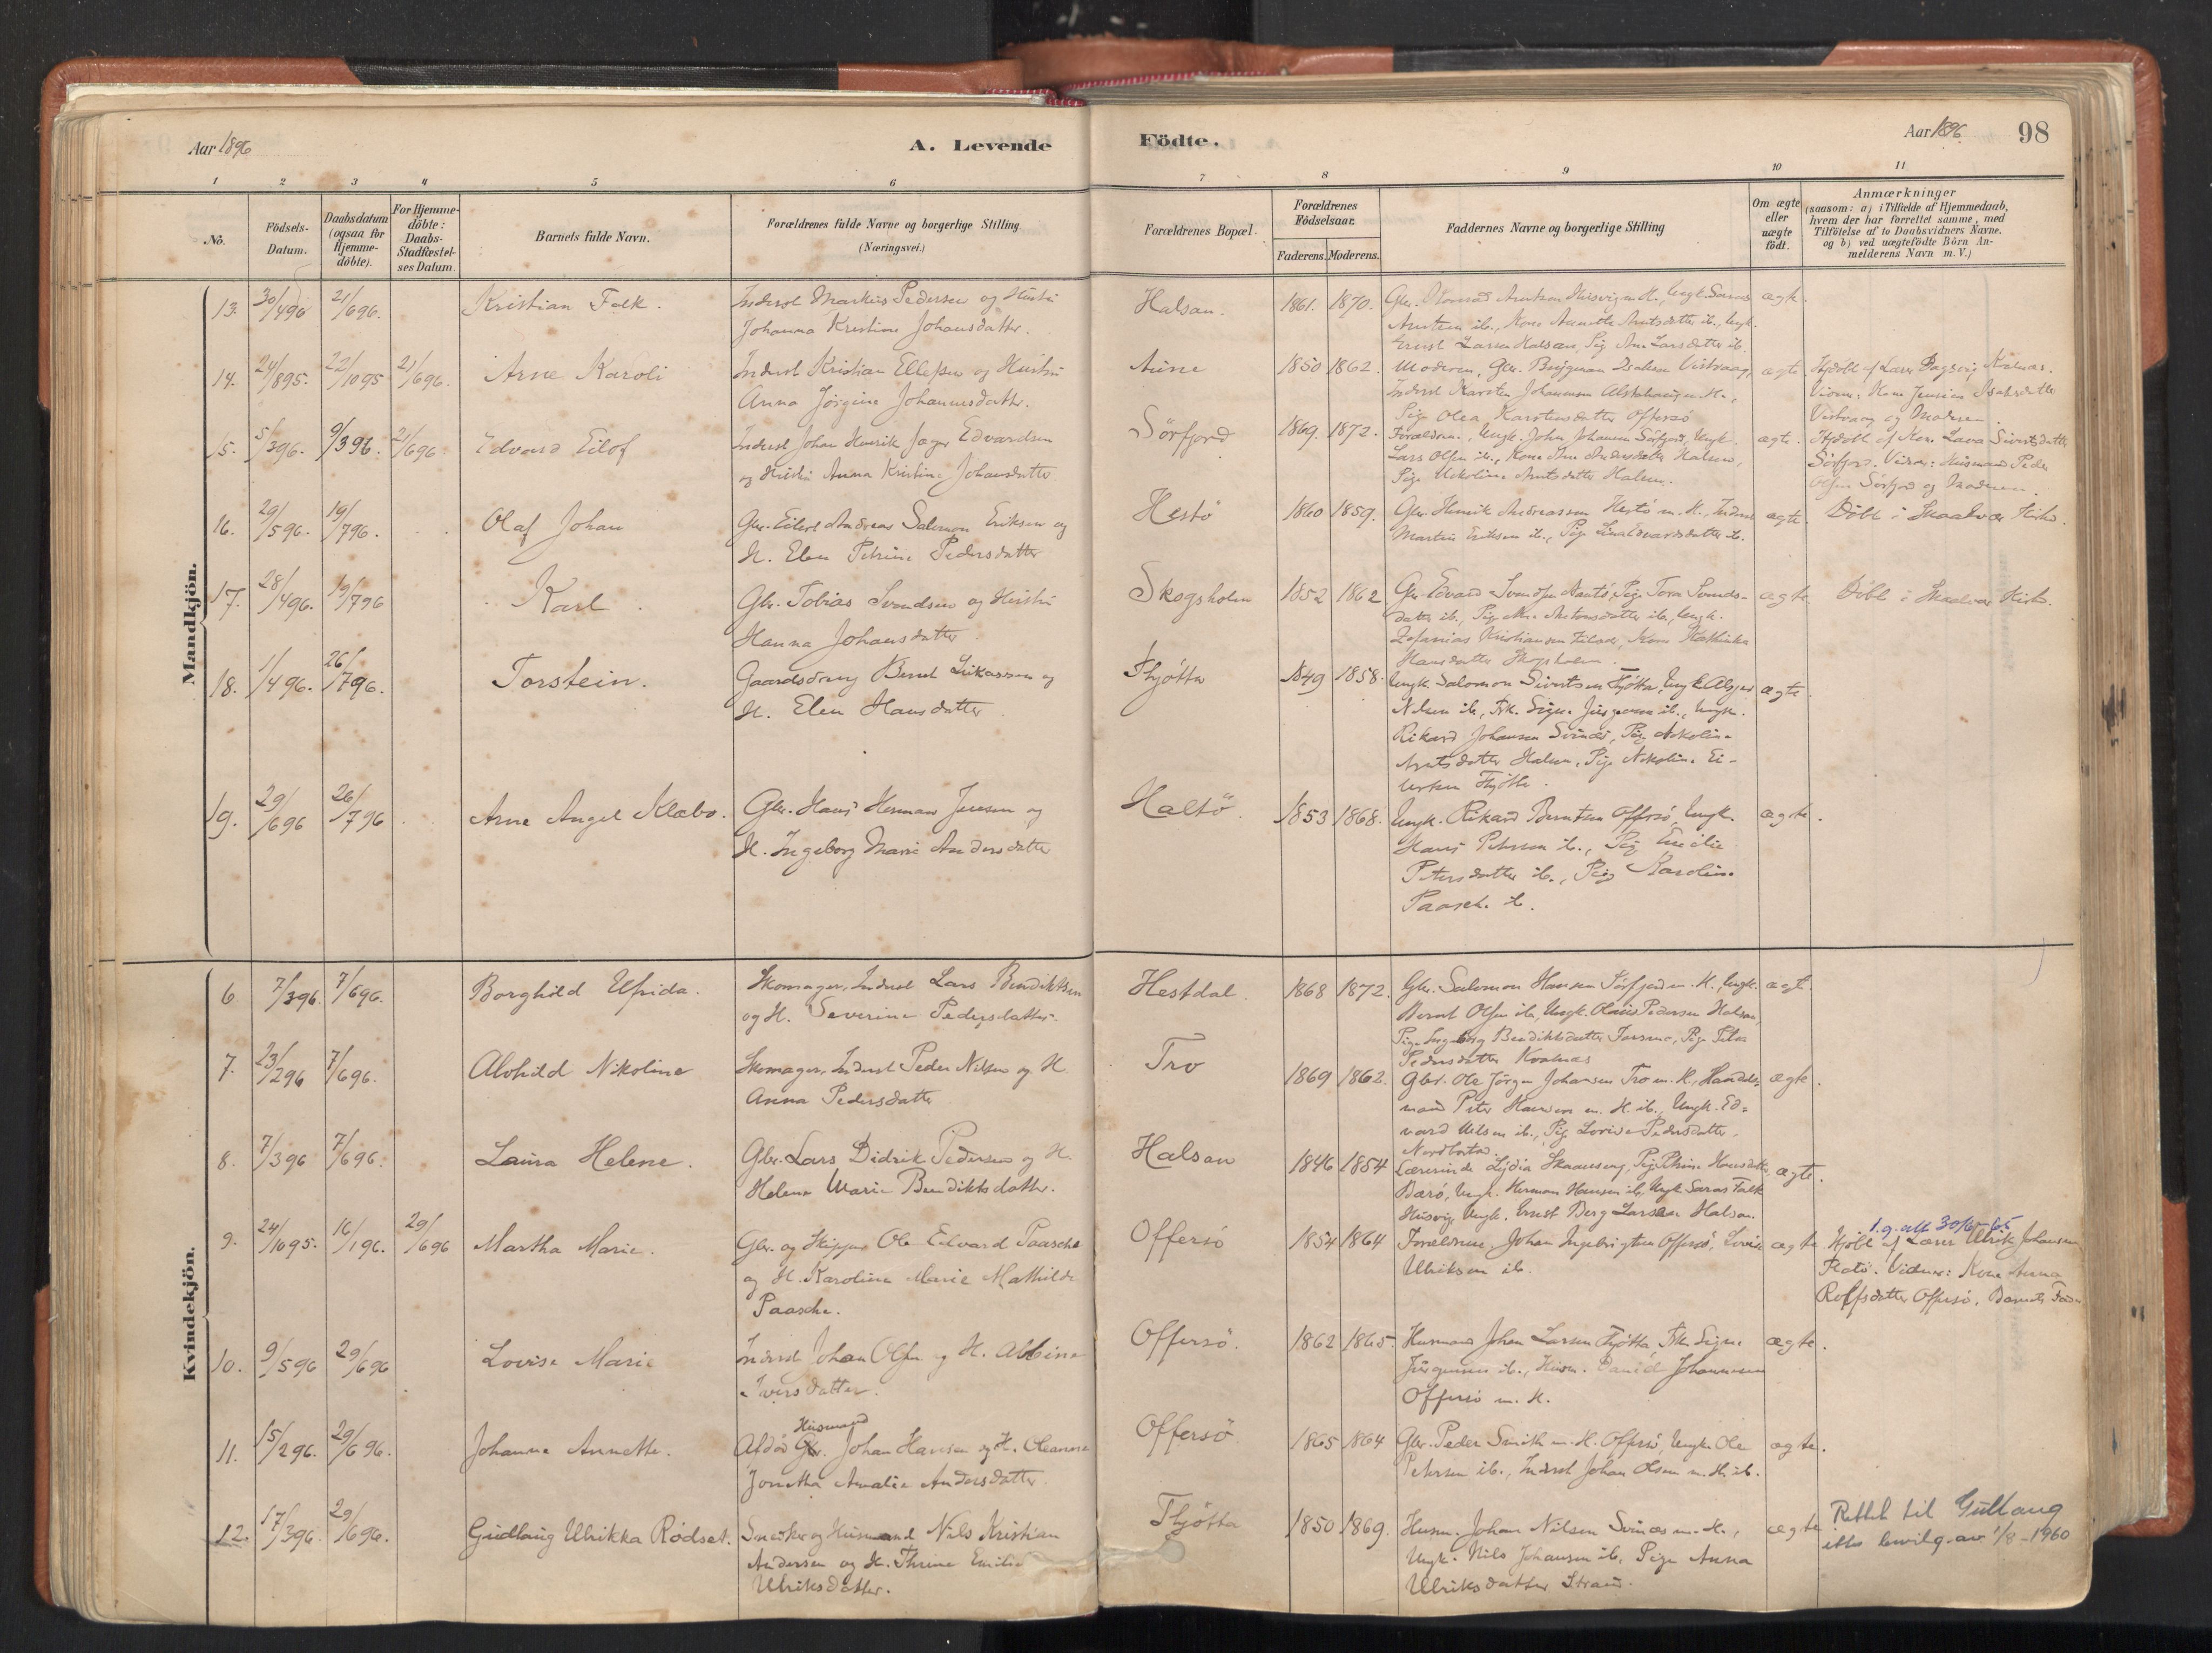 Aar 1896
A. Levende
Födte.
Aar 1896.
98
1 2 3 4 5 6 7 8 9 10 11
No.
Födsels-
Datum.
Daabsdatum
(ogsaa for
Hjemme-
döbte).
For Hjemme-
döbte:
Daabs-
Stadfæstel-
ses Datum.
Barnets fulde Navn.
Forældrenes fulde Navne og borgerlige Stilling
(Næringsvei.)
Forældrenes Bopæl.
Forældrenes
Födselsaar.
Faderens. Moderens.
Faddernes Navne og borgerlige Stilling
Om ægte
eller
uægte
födt.
Anmærkninger
(saasom: a) i Tilfælde af Hjemmedaab,
hvem der har forrettet samme, med
Tilföielse af to Daabsvidners Navne.
og b) ved uægtefödte Börn An-
melderens Navn m. V.)
Mandkjön.
13. 30/496 21/696. Kristian Falk.
Inderst Markus Pedersen og Hustru
Johanna Kristine Johansdatter.
Halsan. 1861. 1870.
Arntsen ib., Kone Annette Arntsdatter ib., Ungk.
Ernst Larsen Halsan, Pig. Ane Larsdatter ib.
ægte.
14. 24/895. 22/1095 21/696. Arne Karoli
Inderst Kristian Ellefsen og Hustru
Anna Jörgine Johannesdatter.
Aune 1850 1862.
Moderen, Gbr. Benjamin Isaksen Vistvaag,
Inderst Karsten Johannesen Alstahaug m. H.,
Pige Olea Karstensdatter Offersö
ægte
Hjdöbt af Lars Dagsvig Kvalnæs.
Vidner: Kone Jensine Isaksdatter
Vistvaag og Moderen.
15. 5/396. 9/396. 21/696 Edvard Eilof
Inderst Johan Henrik Jæger Edvardsen
og Hustru Anna Kristine Johansdatter
Sörfjord 1869. 1872.
Forældrene, Ungk. John Johansen Sörfjord, Ungk.
Lars Olsen ib., Kone Ane Andersdatter Halsan,
Pige Nikoline Arntsdatter Halsan.
ægte.
Hjdöbt af Kone Lava Sivertsdatter
Sörfjord. Vidner: Husmand Peder
Olsen Sörfjord og Moderen.
16. 29/596. 19/796. Olaf Johan
Gbr. Eilert Andreas Salomon Eriksen og
H. Elen Petrine Pedersdatter
Hestö 1860 1859.
Gbr. Henrik Andreassen Hestö m. H., Inderst
Martin Eriksen ib., Pige Lina Edvardsdatter ib.
ægte.
Döbt i Skaalvær Kirke.
17. 28/496. 19/796 Karl
Gbr. Tobias Svendsen og Hustru
Hanna Johansdatter
Skogsholm 1852 1862
Zefanias Kristiansen, Kone Kathinka
Hansdatter Skogsholm.
ægte
Döbt i Skaalvær Kirke.
18. 1/496. 26/796. Torstein.
Gaardsdreng Bernt Lukassen og
H. Elen Hansdatter
Thjötta 1849 1858.
Ungk. Salomon Sivertsen Thjötta, Ungk.
Nilsen ib., Frk. Signe Jürgensen ib., Ungk.
Rikard Johansen Svinæs, Pige Nikoline
Arntsdatter Halsan, Pige Nikoline Ei-
lertsen Thjötta.
ægte.
19. 29/696 26/796 Arne Angel Klæbo.
Gbr. Hans Herman Jensen og
H. Ingeborg Marie Andersdatter
Haltö. 1853 1868.
Ungk. Rikard Berntsen Offersö, Ungk.
Hans Petersen ib., Pige Emilie
Petersdatter ib., Pige Karoline
Paasche ib.
ægte.
Kvindekjön.
6 7/396. 7/696. Borghild Alfrida.
Skomager, Inderst Lars Bendiktsen
og H. Severine Pedersdatter.
Hestdal. 1868 1872.
Gbr. Salomon Hansen Sörfjord m. H., Ungk.
Bernt Olsen ib., Ungk. Olaus Pedersen Halsan,
Pige Ingeborg Bendiktsdatter Forsmo, Pige
Pedersdatter Kvalnæs
ægte.
7. 23/296 7/696. Alvhild Nikoline
Skomager, Inderst Peder Nilsen og H.
Anna Pedersdatter
Tro 1869 1862.
Gbr. Ole Jörgen Johansen Tro m. H., Handels-
mand Peter Hansen m. H. ib., Ungk. Ed-
vard Nilsen ib., Pige Lovise Pedersdatter,
ægte.
8. 7/396 7/696. Laura Helene.
Gbr. Lars Didrik Pedersen og H.
Helena Marie Bendiktsdatter.
Halsan 1846 1854
Lærerinde Lydia Skaanseng, Pige Petrine Hansdatter
Barö, Ungk. Herman Hansen ib., Ungk. Saras Falk
Husvig, Ungk. Ernst Berg Larsen Halsan.
ægte.
9. 24/1095. 16/196. 29/696 Martha Marie.
Gbr. og Skipper Ole Edvard Paasche
og H. Karoline Marie Mathilde
Paasche.
Offersö 1854 1864
Forældrene, Johan Ingebrigtsen Offersö, Lovise
Ulriksen ib.
ægte
Hjdöbt af Lærer Ulrik Johansen
Flatö. Vidner: Kone Anna
Rolfsdatter Offersö, Barnets Fader
10. 9/596 29/696 Lovise Marie
Inderst Johan Olsen og H. Albine
Iversdatter.
Offersö. 1862 1865.
Husmand Johan Larsen Thjötta, Frk. Signe
Jürgensen ib., Husm. Daniel Johannesen
Offersö m. H.
ægte.
11. 15/296. 29/696. Johanne Annette.
Husmand
Afdöd Gbr. Johan Hansen og H. Oleanna
Jonetha Amalie Andersdatter.
Offersö 1865 1864
Gbr. Peder Smith m. H. Offersö, Ungk. Ole
Petersen ib., Inderst Johan Olsen m. H. ib.
ægte.
12. 17/396. 29/696. Gudlaug Ulrikka Rödset.
Snedker og Husmand Nils Kristian
Andersen og H. Thrine Emilie
Ulriksdatter.
Thjötta 1850 1869.
Husm. Johan Nilsen Svinæs m. H.,
Ungk. Nils Johansen ib., Pige Anna
Ulriksdatter Straum.
ægte
Rettet til Gullaug
ifln bevilg. av 1/8-1960